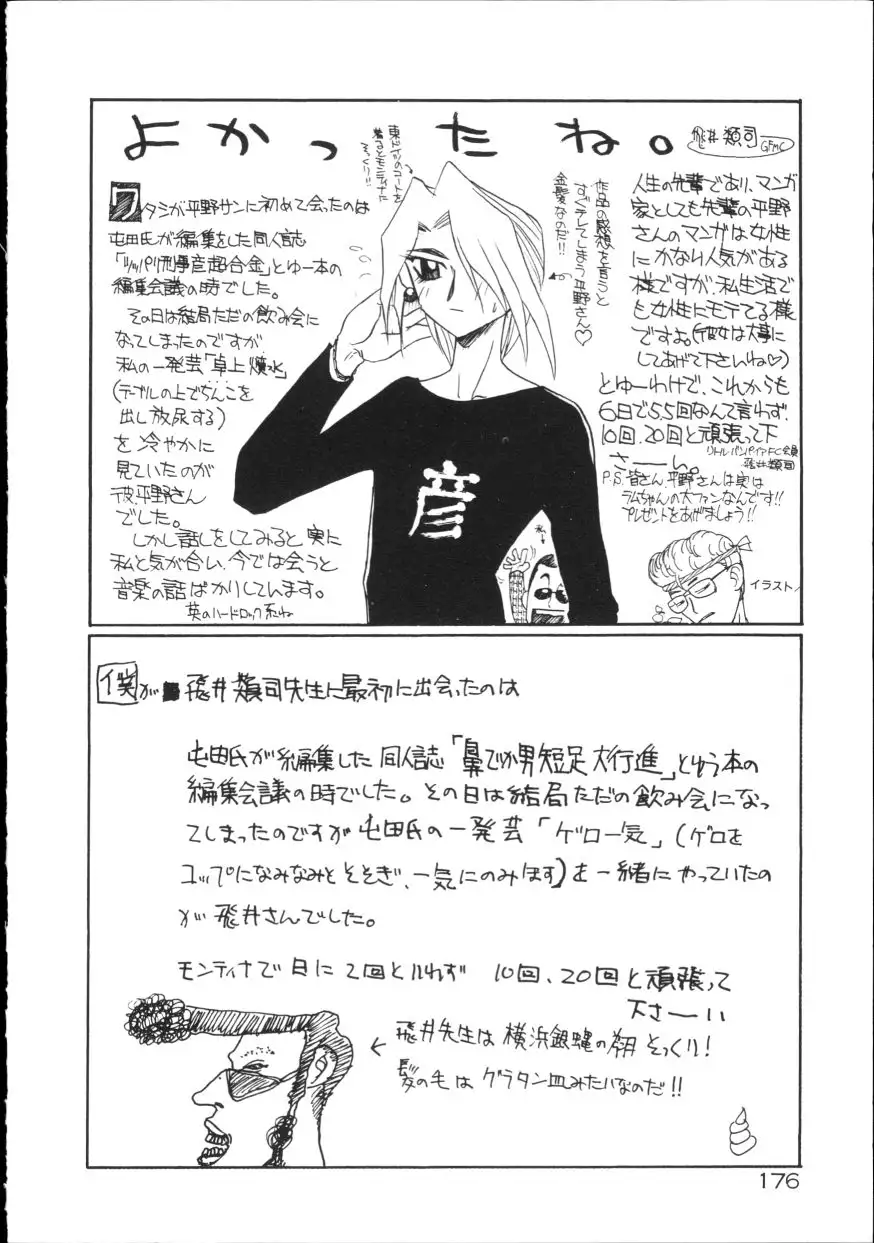 よかったね。
飛井類司
GFMC
東ドイツのコートを
着るとモンティナた
そっくり!!
作品の感想を言うと
すぐテレてしまう平野さん♡
金髪なのだ!!
ワタシが平野サンに初めて会ったのは
屯田氏が編集をした同人誌
「ツッパリ刑事彦超合金」とゆー本の
編集会議の時でした。
その日は結局ただの飲み会に
なってしまったのですが
私の一発芸「卓上噴水」
(テーブルの上でちんこを
出し放尿する)
を冷やかに
見ていたのが
彼、平野さん
でした。
しかし話しをしてみると実に
私と気が合い、今では会うと
音楽の話ばかりしています。
英のハードロック系ね
人生の先輩であり、マンガ
家としても先輩の平野
さんのマンガは女性
にかなり人気がある
様ですが、私生活で
も女性にモテてる様
ですよ(彼女は大事に
してあげて下さいね♡)
とゆーわけで、これからも
6日で55回なんて言わず、
10回、20回と頑張って下
さーい。
リトルバンパイアFC会員
飛井類司
P.S. 皆さん、平野さんは実は
ラムちゃんの大ファンなんです!!
プレゼントをあげましょう!!
彦
私
イラスト/
僕が飛井類司先生に最初に出会ったのは
屯田氏が編集した同人誌「鼻でか男短足大行進」とゆう本の
編集会議の時でした。その日は結局ただの飲み会になっ
てしまったのですが屯田氏の一発芸「ゲロ一気」(ゲロを
コップになみなみとそそぎ、一気にのみほす)を一緒にやっていたの
が飛井さんでした。
モンティナで日に2回といわず 10回、20回と頑張って
下さーい
飛井先生は横浜銀蝿の翔そっくり!
髪の毛はグラタン皿みたいなのだ!!
176